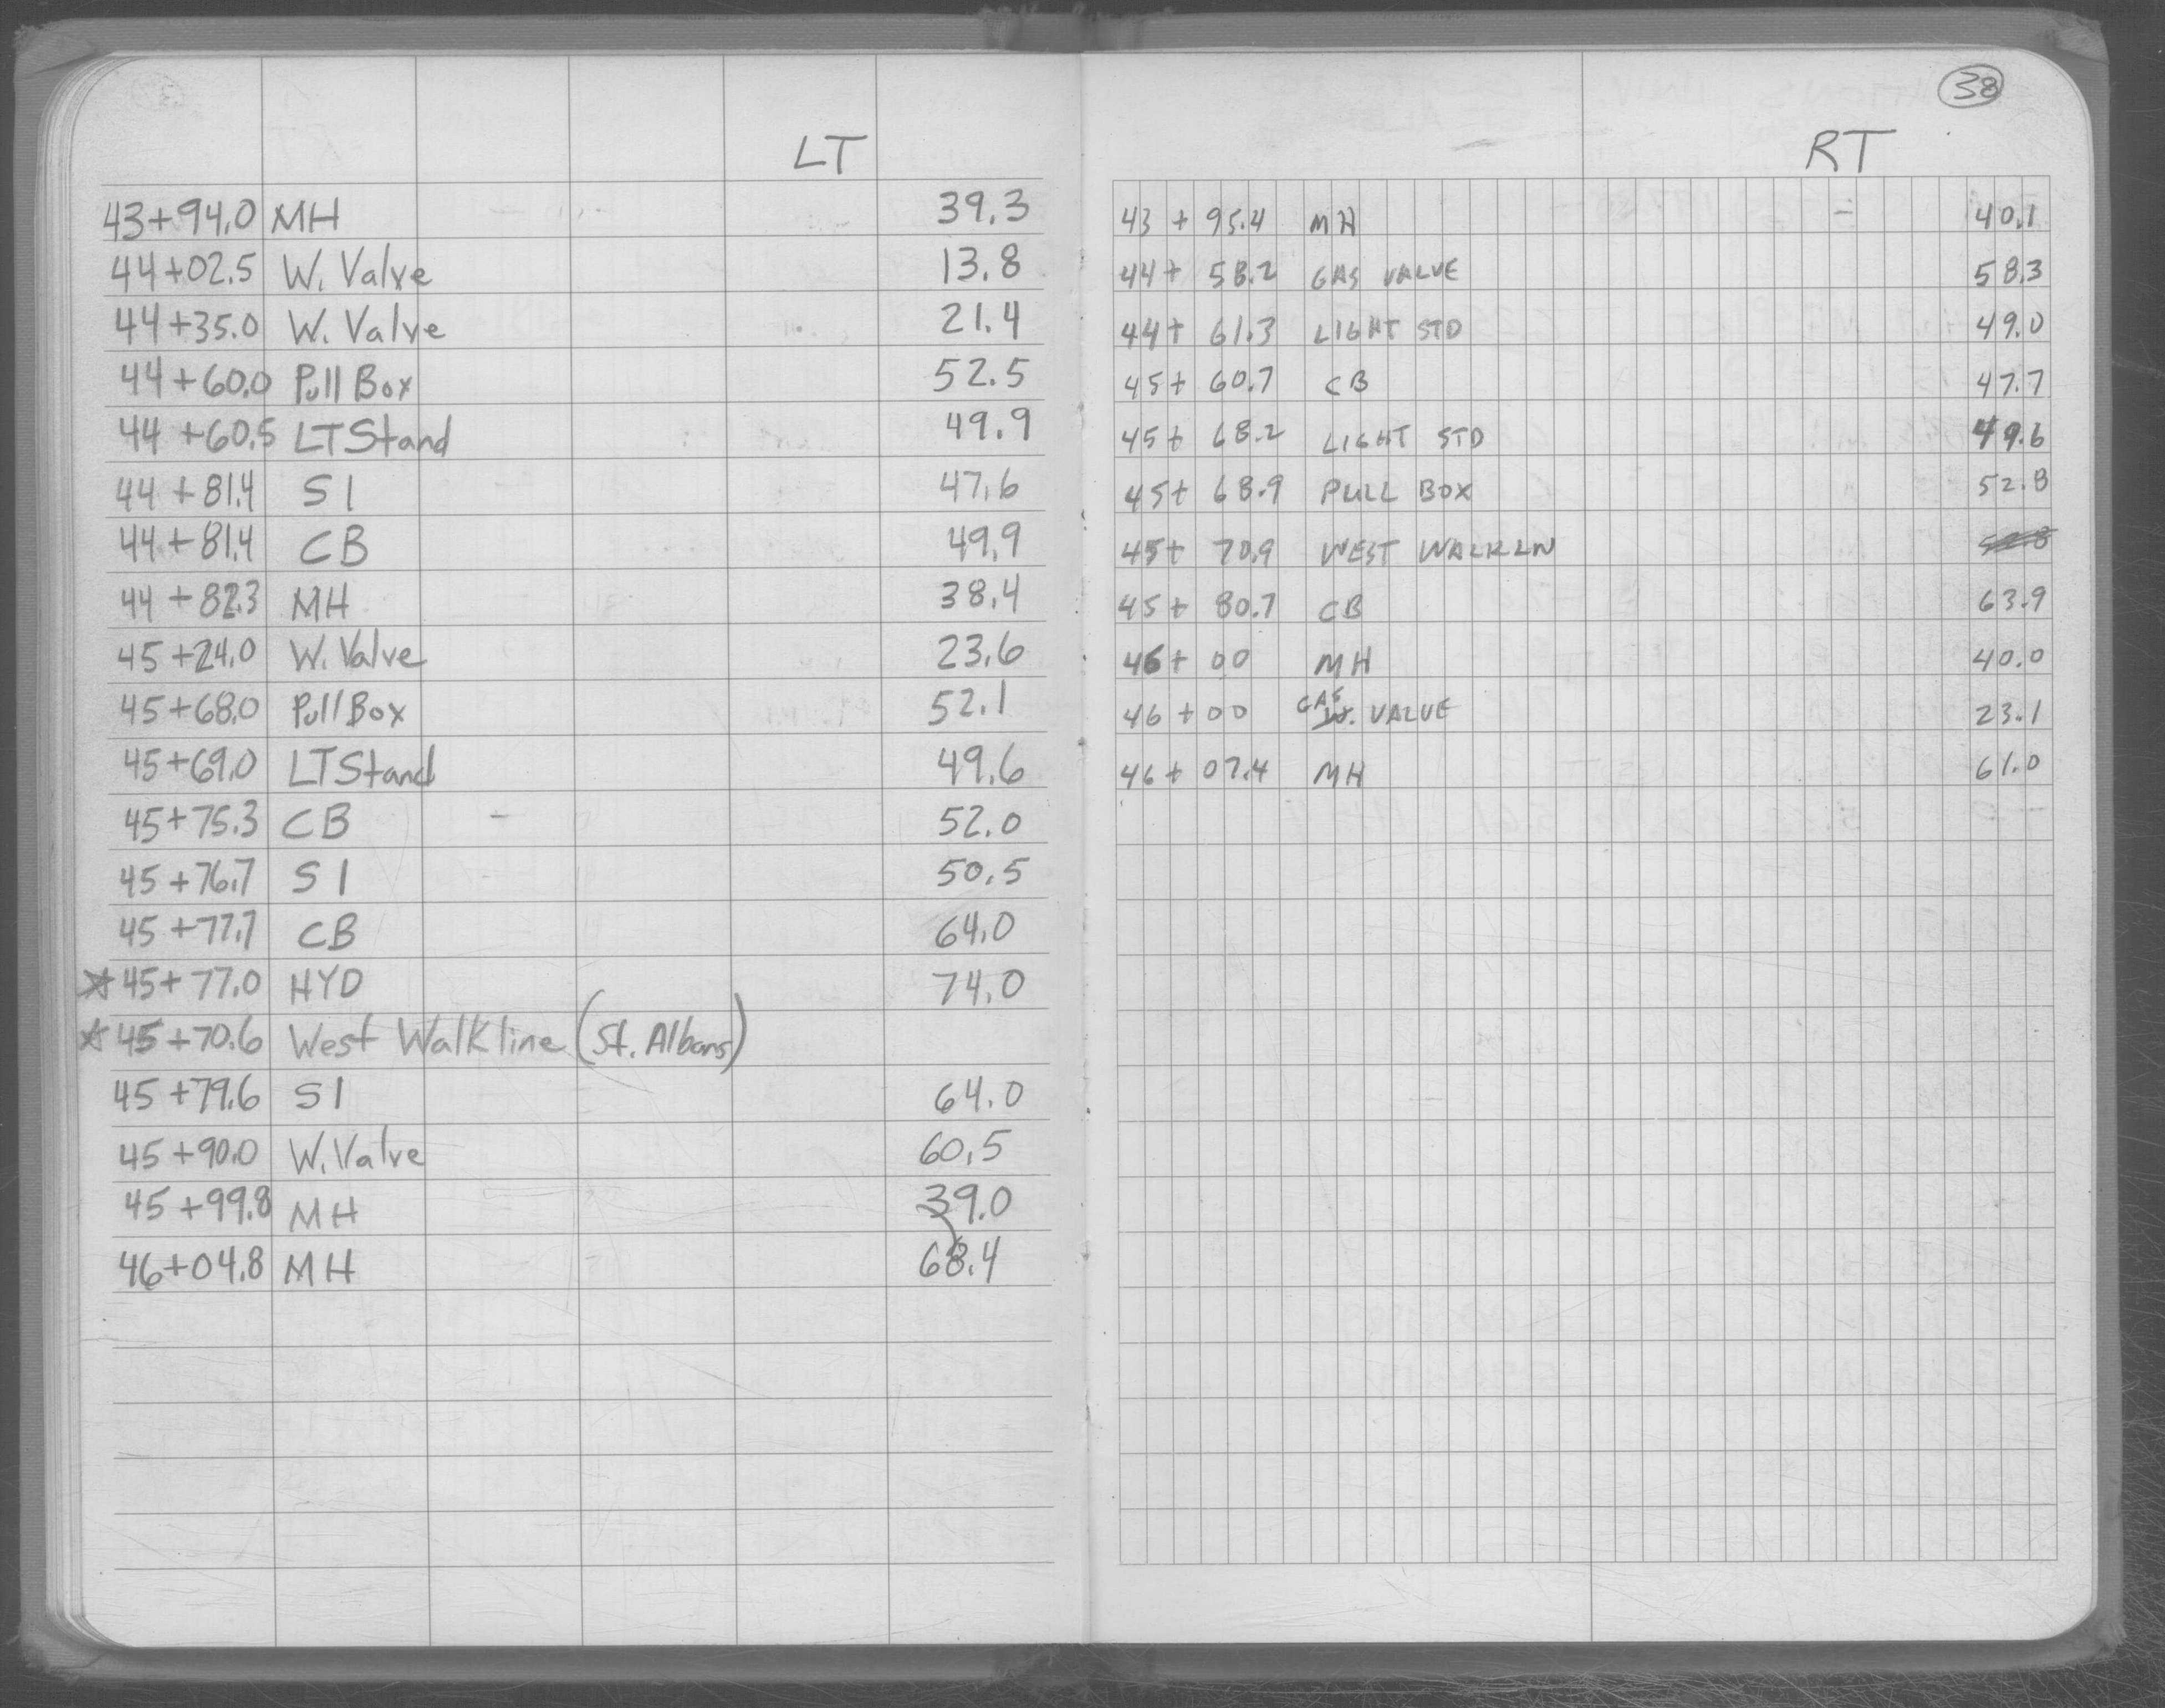 LT
43+94.0 MH 39.3
44+02.5 W. Valve 13.8
44+35.0 W. Valve 21.4
44+60.0 Pull Box 52.5
44+60.5 LT Stand 49.9
44+81.4 SI 47.6
44+81.4 CB 49.9
44+82.3 MH 38.4
45+24.0 W. Valve 23.6
45+68.0 Pull Box 52.1
45+69.0 LT Stand 49.6
45+75.3 CB 52.0
45+76.7 SI 50.5
45+77.7 CB 64.0
☆ 45+77.0 HYD 74.0
☆ 45+70.6 West Walkline (St. Albans)
45+79.6 SI 64.0
45+90.0 W. Valve 60.5
45+99.8 MH 39.0
46+04.8 MH 68.4
38
RT
43+95.4 MH 40.1
44+58.2 GAS VALVE 58.3
44+61.3 LIGHT STD 49.0
45+60.7 CB 47.7
45+68.2 LIGHT STD 49.6
45+68.9 PULL BOX 52.8
45+70.9 WEST WALKLN
45+80.7 CB 63.9
46+00 MH 40.0
46+00 GAS VALVE 23.1
46+07.4 MH 61.0